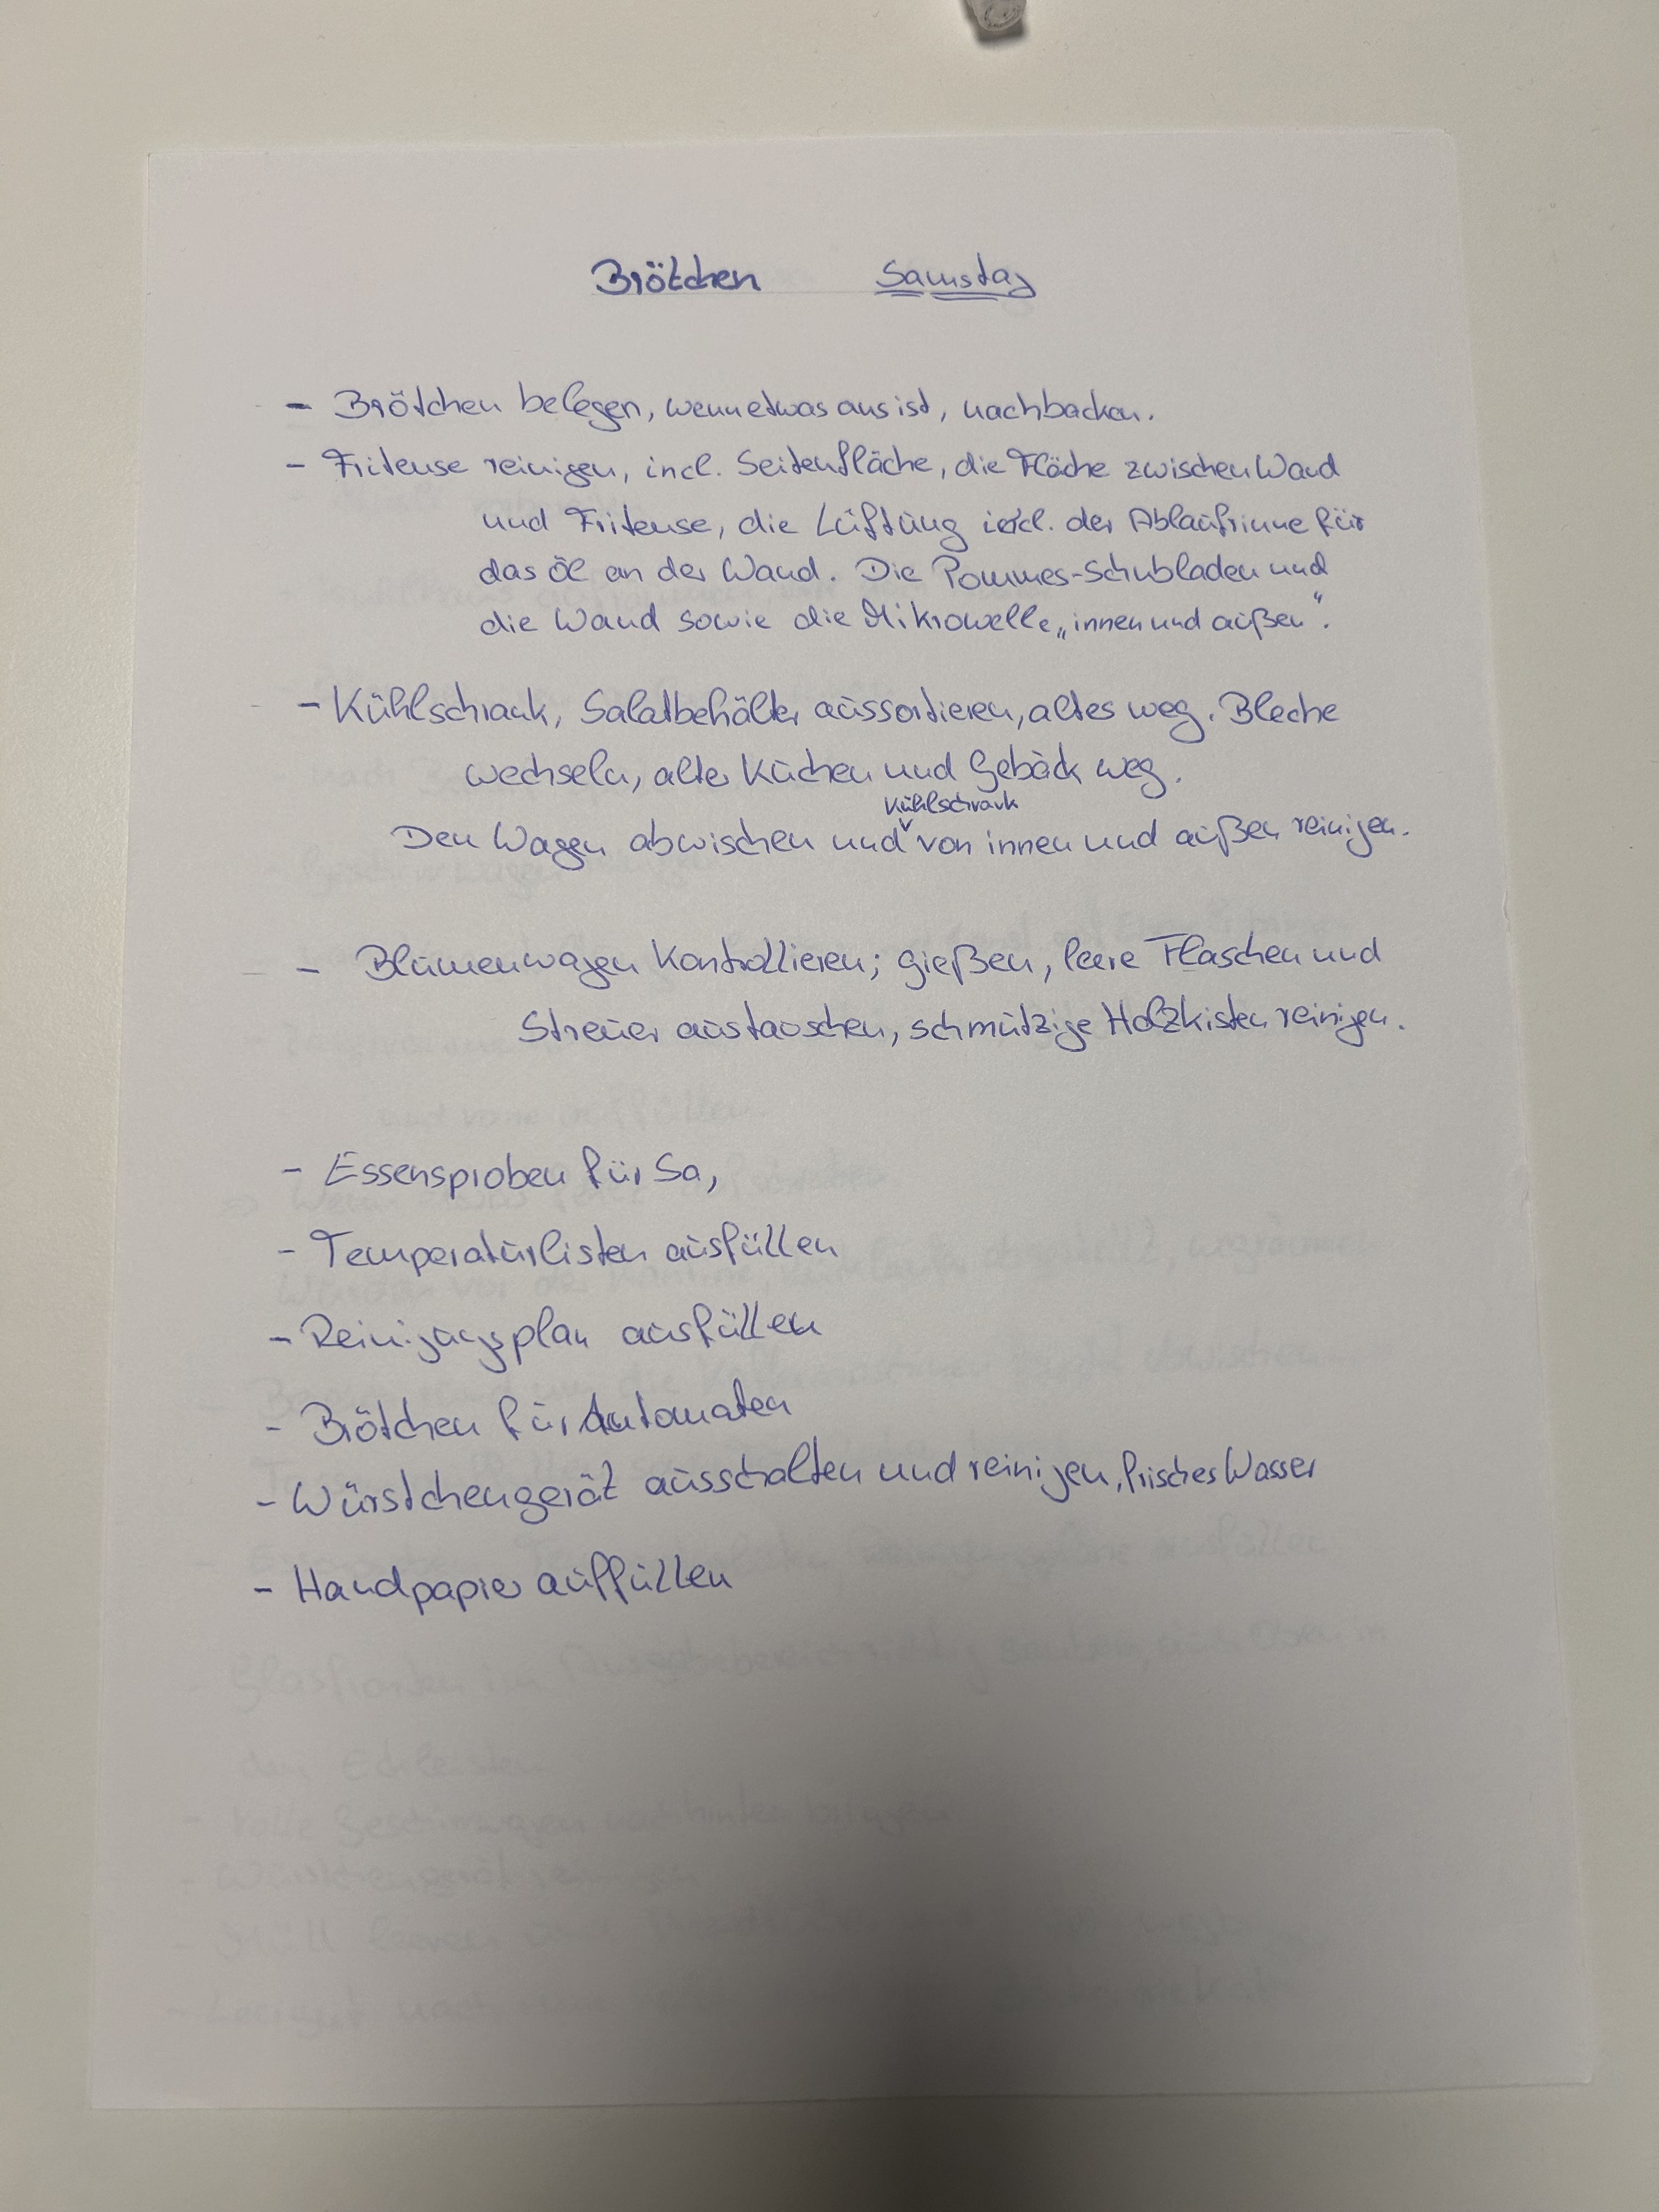 Brötchen Samstag
- Brötchen belegen, wenn etwas aus ist, nachbacken.
- Friteuse reinigen, incl. Seitenfläche, die Fläche zwischen Wand
und Friteuse, die Lüftung incl. der Ablaufrinne für
das Öl an der Wand. Die Pommes-Schubladen und
die Wand sowie die Mikrowelle „innen und außen“.
- Kühlschrank, Salatbehälter aussortieren, altes weg. Bleche
wechseln, alter Kuchen und Gebäck weg.
Kühlschrank
Den Wagen abwischen und von innen und außen reinigen.
- Blumenwagen Kontrollieren; gießen, leere Flaschen und
Streuer austauschen, schmutzige Holzkisten reinigen.
- Essensproben für Sa,
- Temperaturlisten ausfüllen
- Reinigungsplan ausfüllen
- Brötchen für Automaten
- Würstchengerät ausschalten und reinigen, frisches Wasser
- Handpapier auffüllen